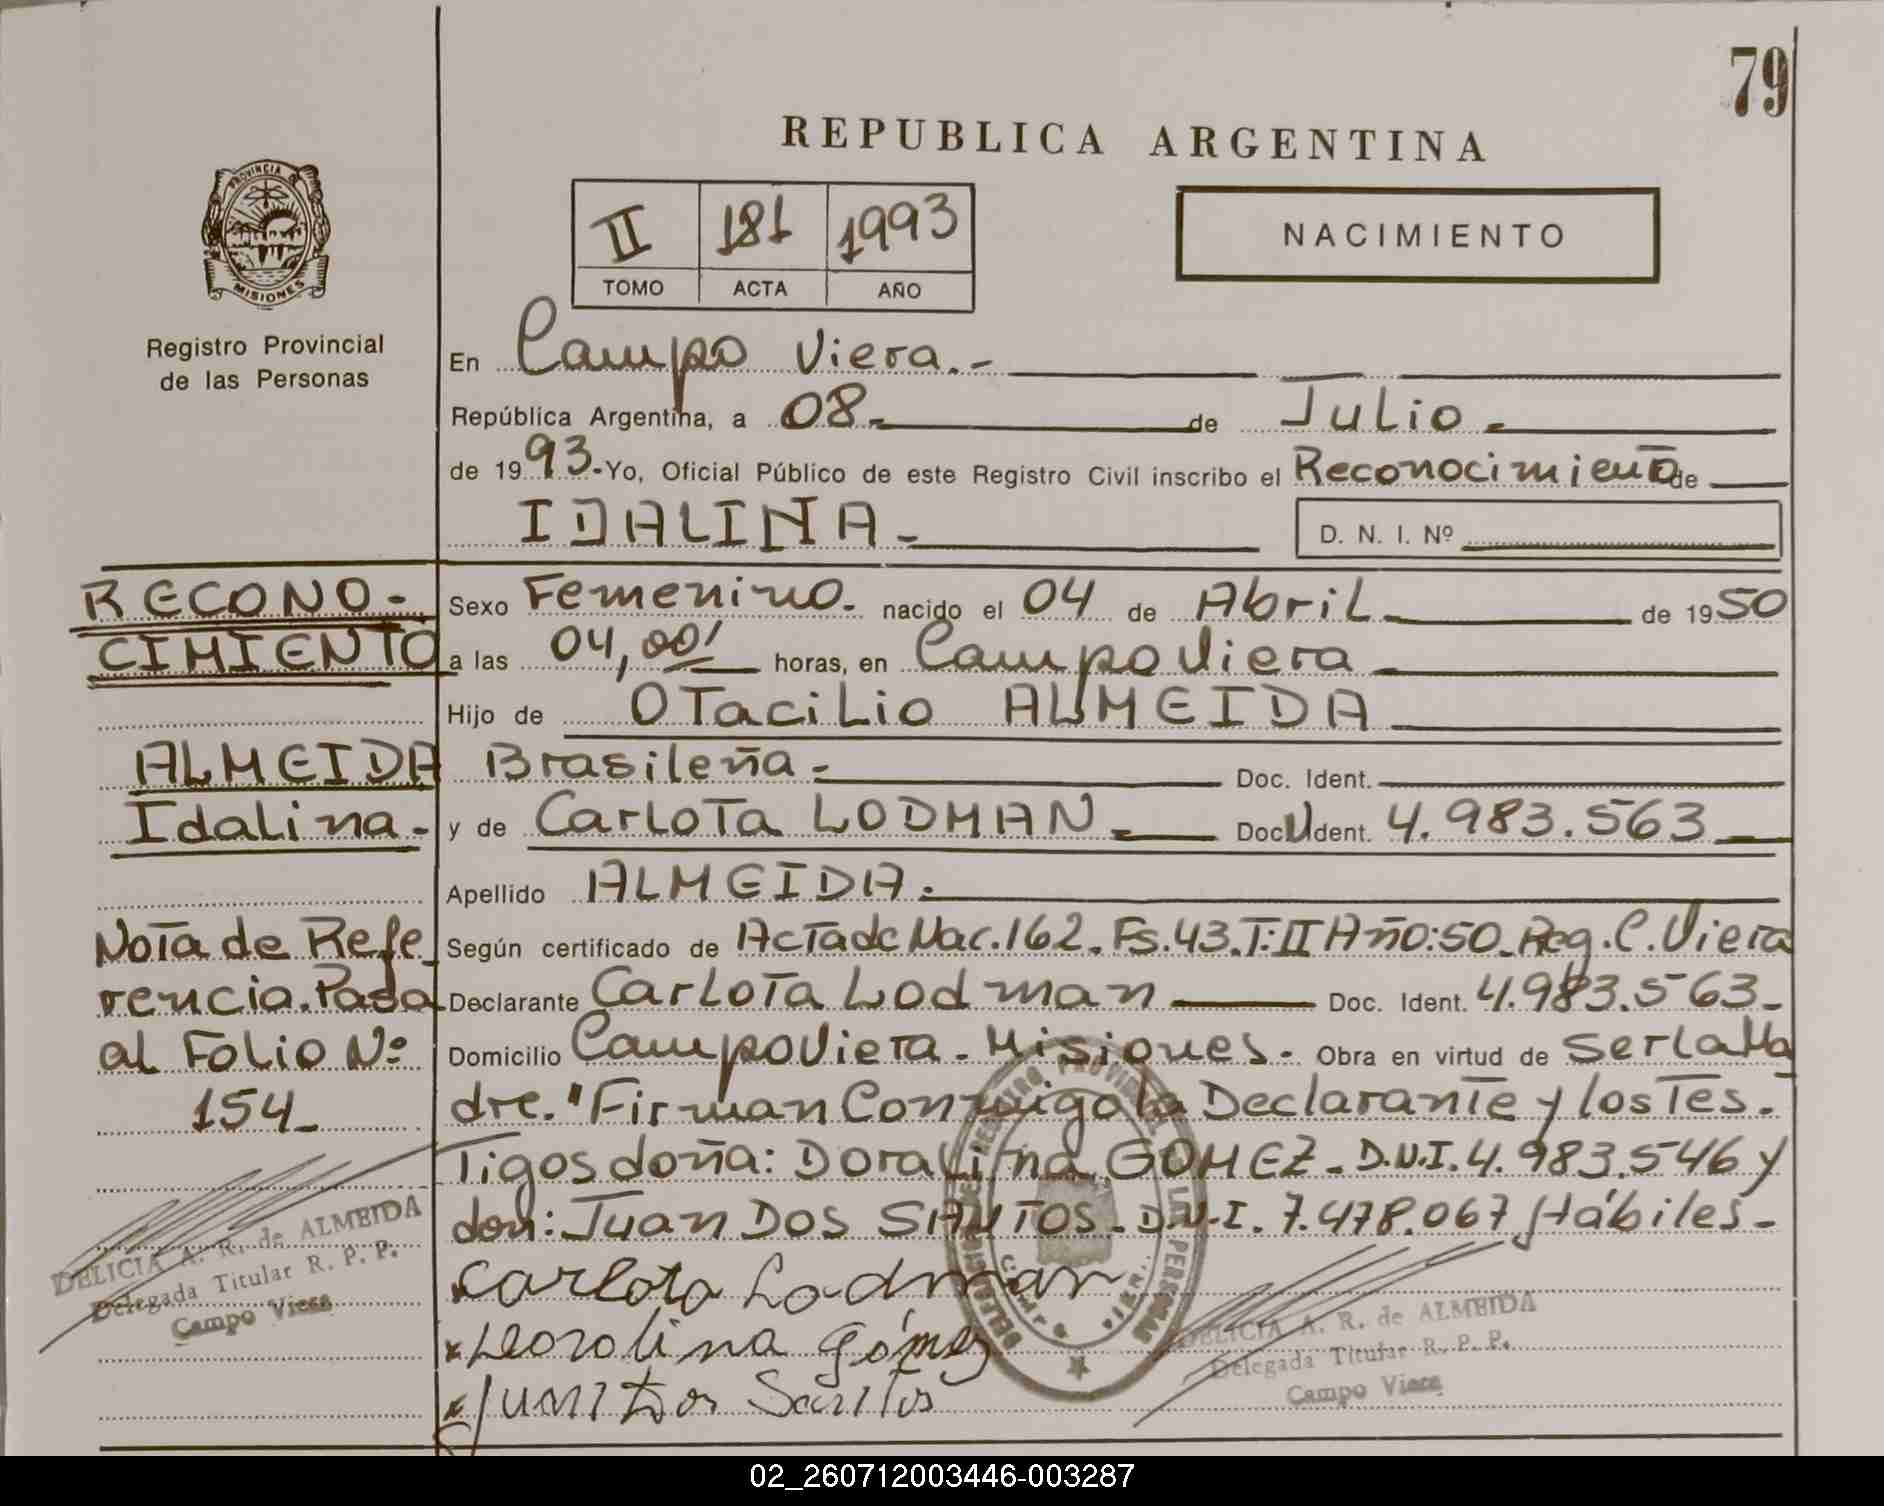 79
REPUBLICA ARGENTINA
PROVINCIA DE
MISIONES
Registro Provincial
de las Personas
II 181 1993
TOMO ACTA AÑO
NACIMIENTO
En Campo Viera.-
República Argentina, a 08.- de Julio.-
de 1993.-Yo, Oficial Público de este Registro Civil inscribo el Reconocimiento de
IDALINA.-
D. N. I. Nº
RECONO-
CIMIENTO
ALMEIDA
Idalina.-
Nota de Refe
rencia. Pasa
al Folio Nº
154_
DELICIA A. R. de ALMEIDA
Delegada Titular R. P. P.
Campo Viera
Sexo Femenino. nacido el 04 de Abril. de 1950
a las 04,00' horas, en Campo Viera
Hijo de OTaciLio ALMEIDA
Brasileña.- Doc. Ident.
y de CarLoTa LODMAN.- Doc. Ident. 4.983.563
Apellido ALMEIDA.
Según certificado de Acta de Nac. 162. Fs. 43. T: II Año: 50. Reg. C. Viera
Declarante CarLoTa Lodman Doc. Ident. 4.983.563_
Domicilio Campo Viera. Misiones. Obra en virtud de Ser la Ma
dre. "Firman Conmigo la Declarante y los Tes.
Tigos doña: Doralina GOMEZ. D.N.I. 4.983.546 y
don: Juan DOS SANTOS. D.N.I. 7.478.067 Hábiles.-
Carlota Lodman
Dorolina Gómez
Juan Dos Santos
DELICIA A. R. de ALMEIDA
Delegada Titular R. P. P.
Campo Viera
02_260712003446-003287